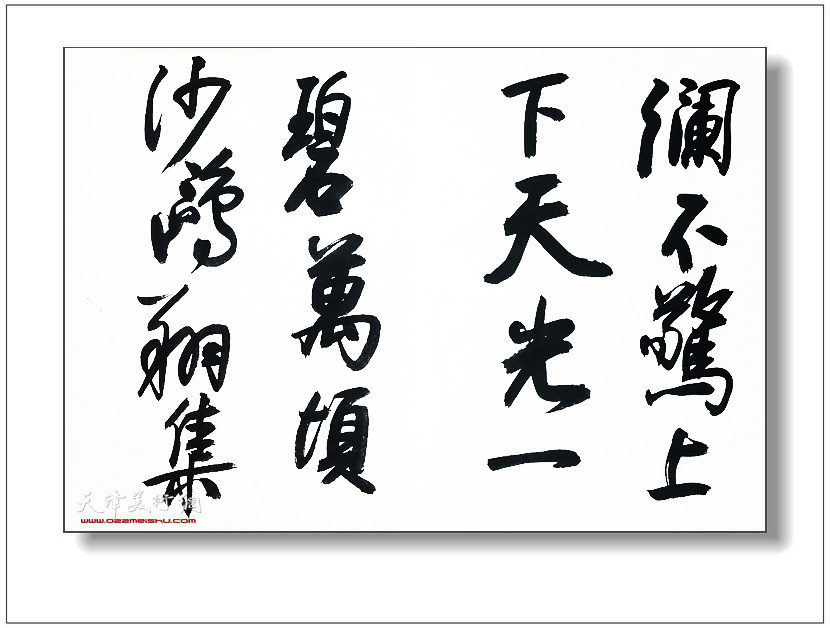 澜不驚上
下天光一
碧萬頃
沙鷗翔集
天津美術網
www.022meishu.com